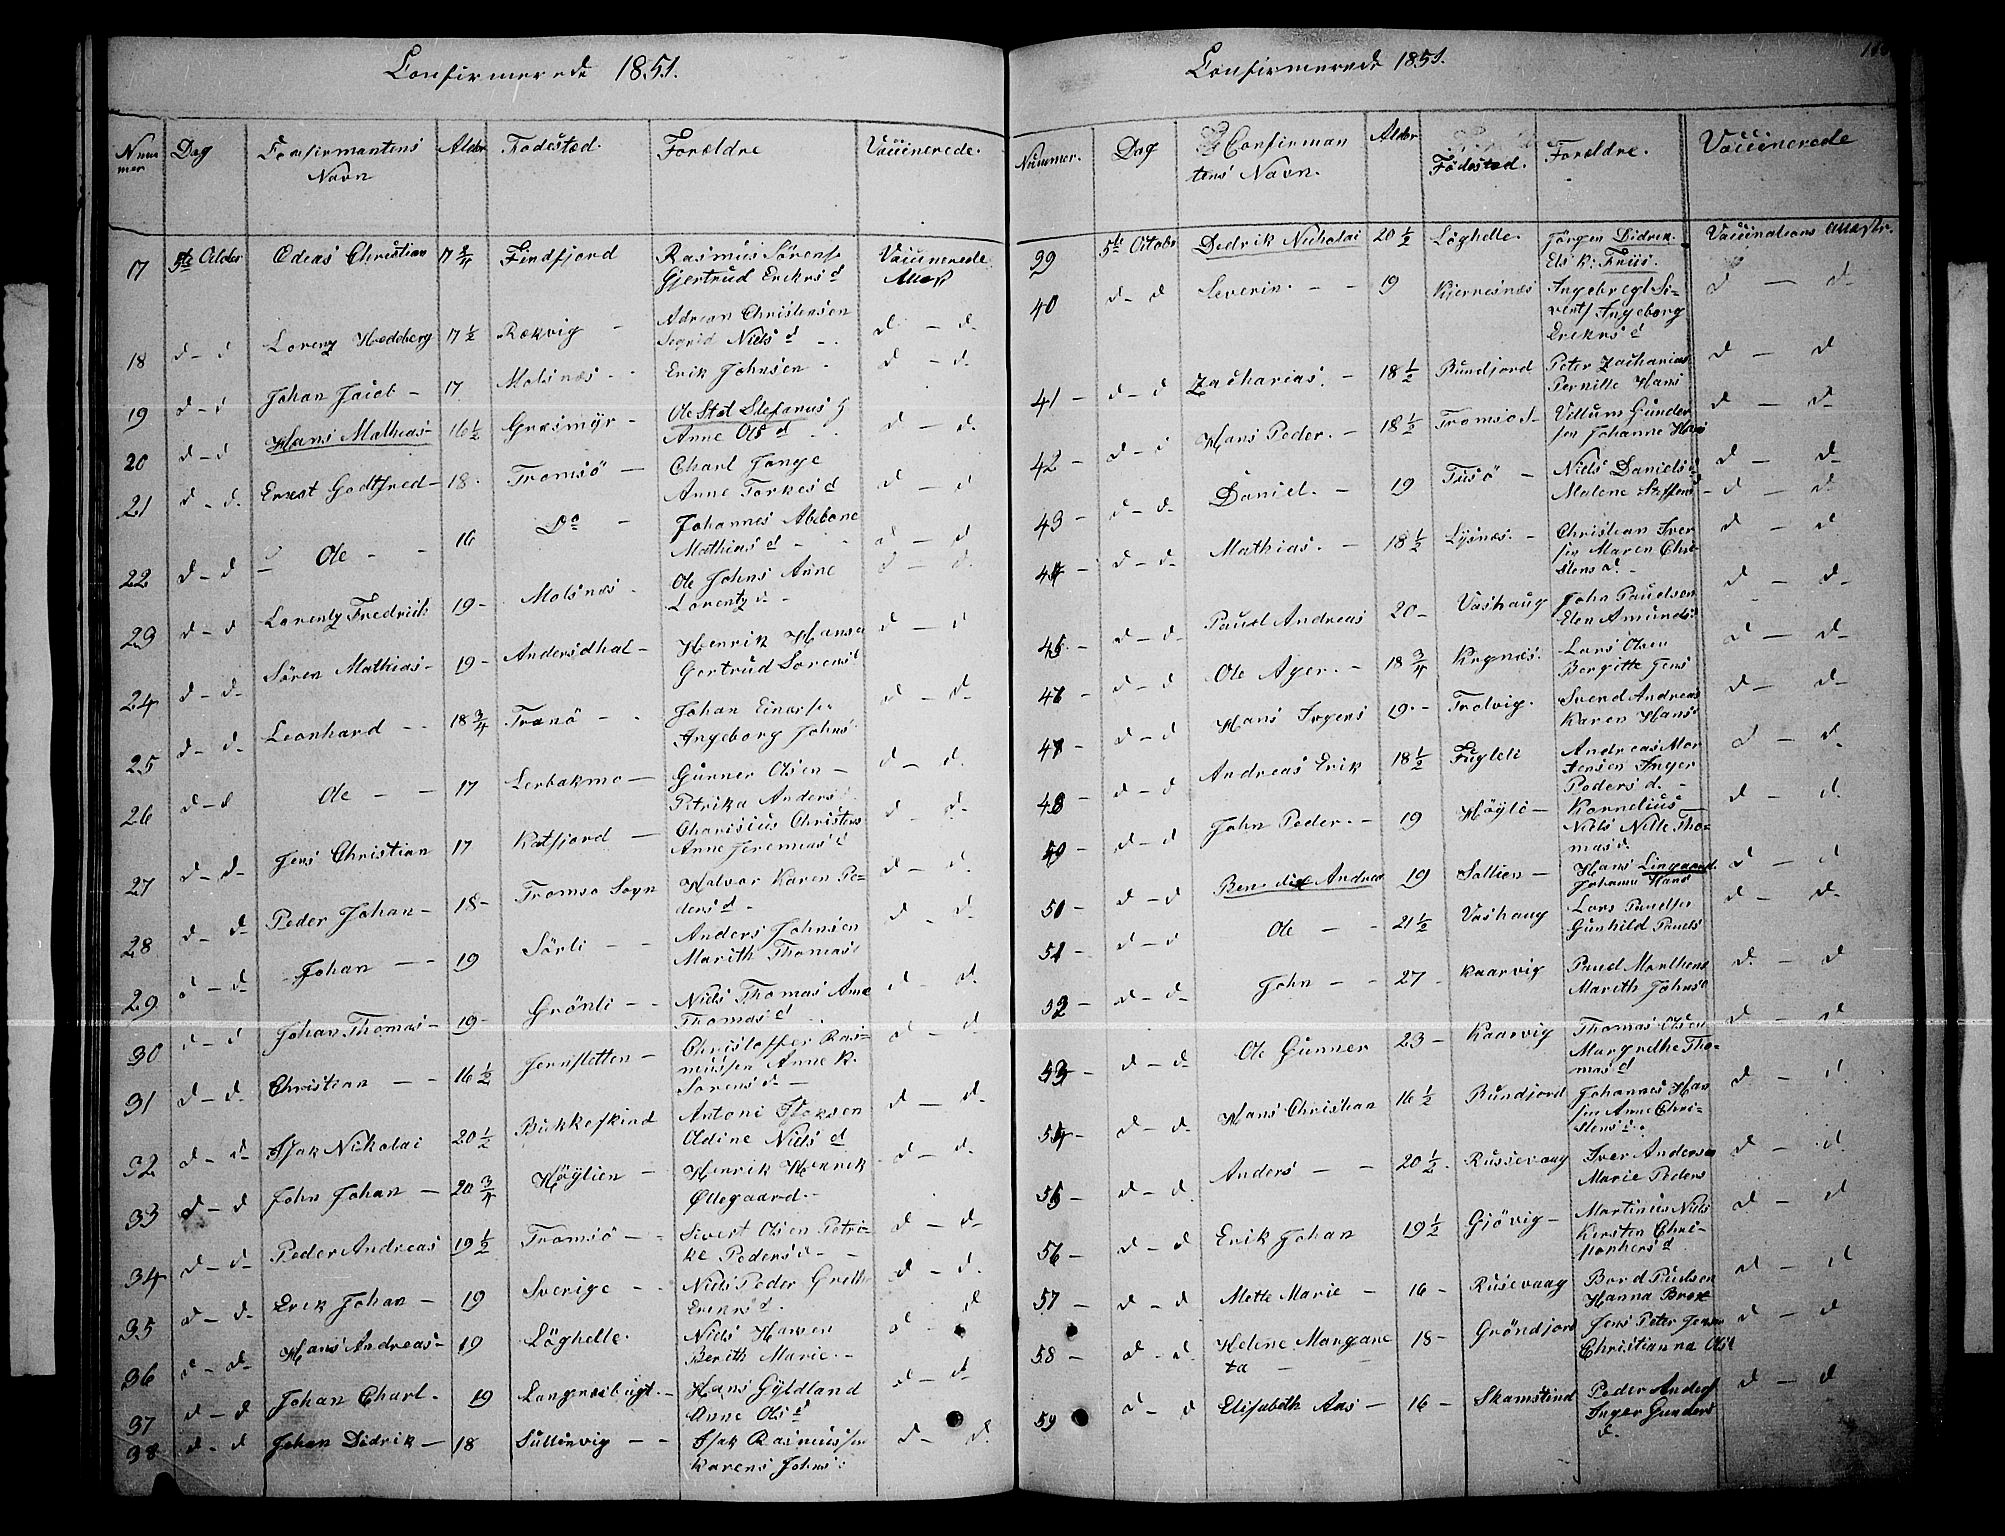 Confirmerede 1851.
Nummer Dag Confirmantens Navn Alder Fødested. Forældre Vaccinerede.
17 5te October Odeas Christian 17 3/4 Findfjord Rasmus Sörens. Vaccinerede
Gjertrud Eriks d Attest
18 d - d Lorenz Hedeberg 17 1/2 Rekvig - Adrean Christensen d - d.
Sigrid Niels d - -
19 d - d Johan Jacob - 17 Malsnæs - - Erik Johnsen - d - d.
20 d - d Hans Mathias - 16 1/2 Græsmÿr - Ole Stefanus d - d.
Anne Ols d - -
21 d - d. Ernst Godtfred - 18. Tromsö - Charl Jange d - d
Anne Torkes d
22 d - d - Ole - - 16 Do - Johannes Abebone d - d
Mathias d - -
23 d - d Lorentz Fredrich 19 - Malsnæs - Ole Johns Anne d - d.
Lorentz d. -
24 d - d. Sören Mathias - 19 - Andersdhal - Henrik Hansen d - d
Gertrud Sorens
25 d - d. Leonhard - - 18 3/4 Tranö - - Johan Einersen d - d.
Ingeborg Johns
26 d - d Ole - - 17 Lerbakmo - Gunner Olsen - d - d.
Petrika Anders
27 d - d. Jens Christian 17 Katfjord - Charisius Christens d - d.
Anne Jeremias d
28 d - d. Peder Johan - 18 - Tromsö Sogn Halvor Karen Pe= d - d.
ders d -
29 d - d. Johan - - 19 Sörli - - Anders Johnsen d - d.
Marith Thomas
30 d - d Johan Thomas - 19 - Grönli - - Niels Thomas Ane d - d.
Thomas d
31 d - d. Christian - - 16 1/2 Jernsletten - Christoffer Ras= d - d
mussen Anne K.
Sorens d. -
32 d - d. Isak Nikolai 20 1/2 Bukkeskind Antoni Isaksen d - d.
Oldine Niels d
33 d - d John Johan - 20 3/4 Höÿlien - Henrik Henrik d - d.
Ollegaard. -
34 d - d. Peder Andreas 19 1/2 Tromsö - - Sivert Olsen Petri= d - d.
ke Peders d - -
35 d - d. Erik Johan - 19 Sverige - - Niels Peder Greth d - d.
Eriks d.
36 d - d. Hans Andreas - 19 Löghelle. Niels Hansen d - d
Berith Marie. -
37 d - d Johan Charl. - 19 Langnesbugt. - Hans Gÿldland d - d
Anne Ols d
38 d - d Johan Didrik - 18 Sullenvig - - Isak Rasmussen d - d.
Karens Johns
Confirmerede 1851.
Nummer. Dag Confirman tens Navn. Alder Födested. Forældre. Vaccinerede
39 5te Octobr Didrik Nicholai 20 1/2 Löghelle. Jörgen Didrik Vaccinations Attest.
Els k: Friis.
40 d - d Severin. - - 19 Kierresnæs Ingebregt Si= d - d.
verts Ingeborg
Eriks d
41 - d - d Zacharias. - 18 1/2 Bundjord Peter Zacharias d - d
Pernille Hans
42 - d - d Hans Peder. - 18 1/2 Tromsöe - Villum Gunder d - d.
sen Johanne Hans
43 - d - d. Daniel. - 19 Tusö - Niels Daniels d - d.
Malene Steffens - d - d.
44 - d - d. Mathias. - 18 1/2 Lÿsnæs. - Christian Iver d - d
sen Maren Chri=
stens d. -
45 d - d. Paul Andreas 20 - Vashaug John Paulsen d - d.
Elen Amunds
46 d - d Ole Ager. - 18 3/4 Krgnæs. Lars Olsen d - d.
Bergitte Jens
47 d - d Hans Ingers 19. - Trolvig. Svend Andreas d - d.
Karen Hans
48 d - d Andreas Erik 18 1/2 Fuglele Andreas Mor d - d.
tensen Inger
Peders d. -
49 d - d John Peder. - 19 Höÿlö - Kornelius - d - d.
Niels Nille Tho=
mas d.
50 - d - d Benedict Andreas 19 Sollien - Hans Lingaard d - d
Johanne Hans
51 d - d Ole - - 21 1/2 Vashaug Lars Paulsen d - d.
Gunhild Pauls
52 d - d. John - - 27 - Kaarvig Paul Marthens d - d
Marith Johns
53 - d - d. Ole Gunner 23 - Kaarvig Thomas Olsen d - d
Margrethe Tho=
mas d
54 - d - d. Hans Christian 16 1/2 Bundjord Johannes Han d - d.
sen Anne Chri=
stens d.
55 - d - d. Anders - - 20 1/2 . Russevaag Iver Andersen d - d
Marie Peders
56 - d - d Erik Johan 19 1/2 Gjövig - Martinus Niels d - d
Kersten Chri=
stophers d
57 - d - d Mette Marie - 16 - Rusevaag Bard Paulsen d - d
Hanna Brox
58 - d - d. Helene Margare 18 - Gröndjord Jens Peter Jensen d - d
ta - - Christianna Ols
59 d - d Elisabeth Aas - 16 - Skamstind Peder Anders d - d
Inger Gunders
d.